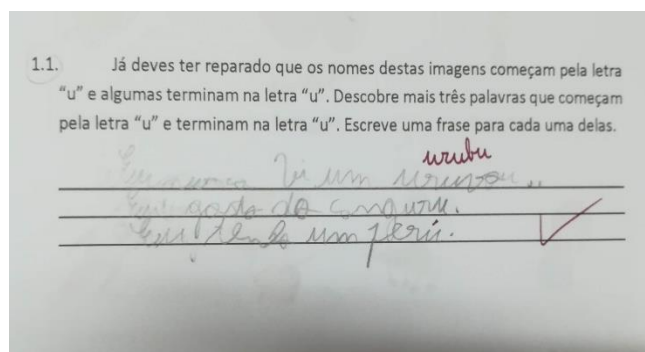 1.1. Já deves ter reparado que os nomes destas imagens começam pela letra
“u” e algumas terminam na letra “u”. Descobre mais três palavras que começam
pela letra “u” e terminam na letra “u”. Escreve uma frase para cada uma delas.
urubu
Eu nunca vi um
gosto do canguru.
Eu tenho um perú.